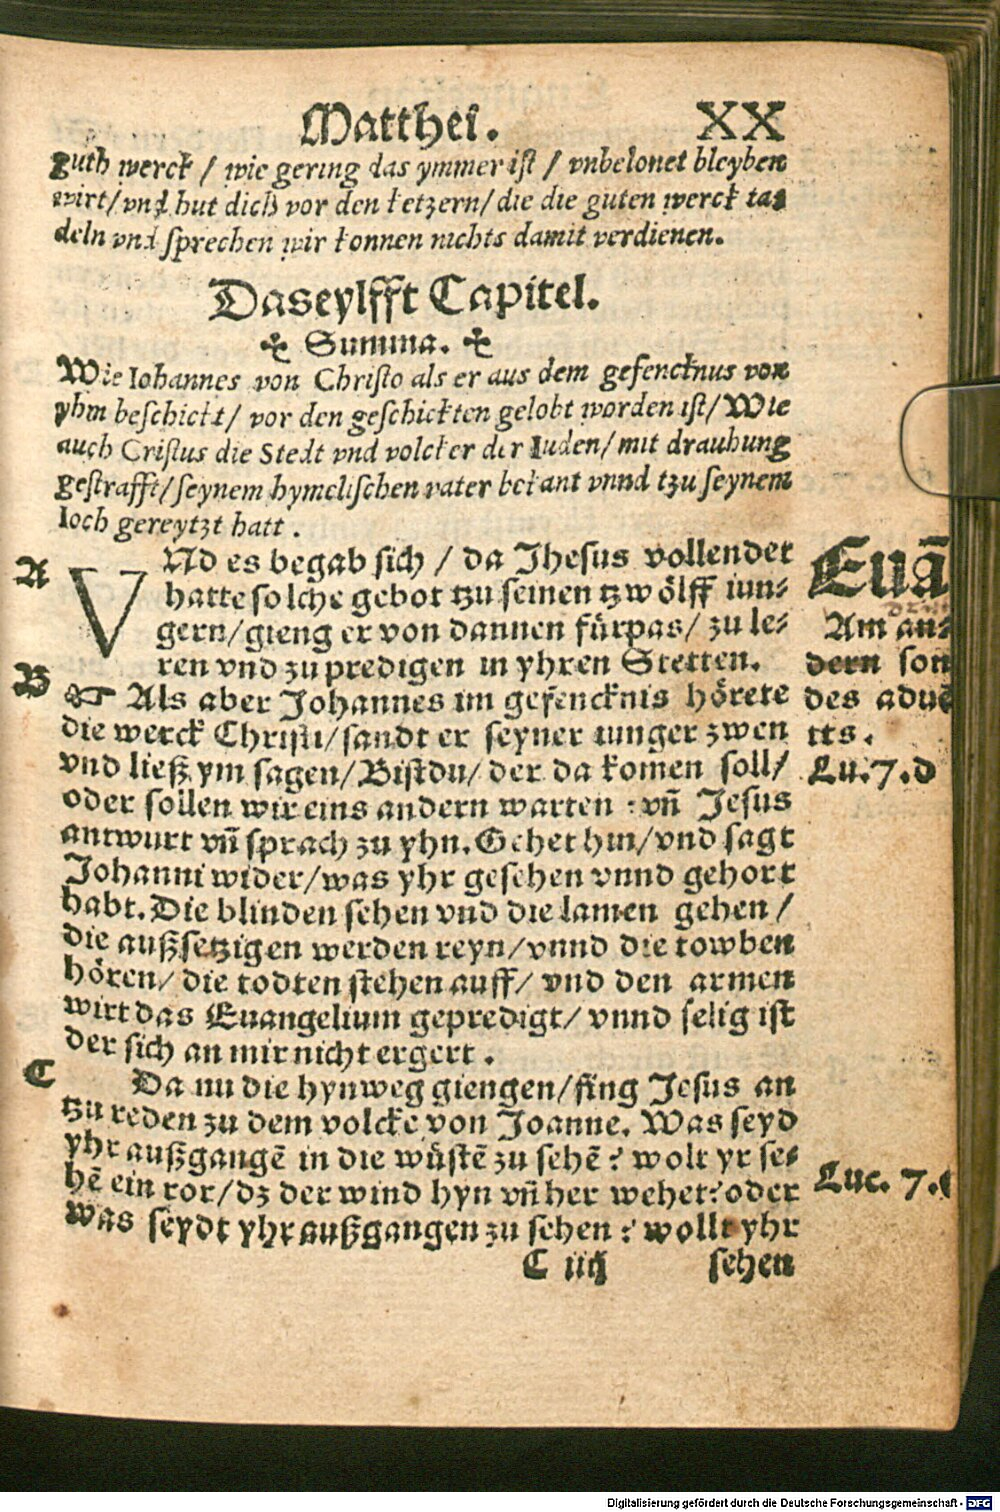 Matthei. XX
guth werck / wie gering das ymmer ist / vnbelonet bleyben
wirt/vnd hut dich vor den ketzern/die die guten werck ta⸗
deln vnd sprechen wir konnen nichts damit verdienen.
Das eylfft Capitel.
✣ Summa. ✣
Wie Iohannes von Christo als er aus dem gefencknus von
yhm beschickt/ vor den geschickten gelobt worden ist/ Wie
auch Cristus die Stedt vnd volcker der Iuden/ mit drauhung
gestrafft/seynem hymelischen vater bekant vnnd tzu seynem
Ioch gereytzt hatt.
A
VNd es begab sich / da Jhesus vollendet
hatte solche gebot tzu seinen tzwölff iun⸗
gern/gieng er von dannen fürpas/ zu le⸗
ren vnd zu predigen in yhren Stetten.
Euā
Am an⸗
dern son
des aduē
tts.
Lu.7.d
B
☞ Als aber Johannes im gefencknis hörete
die werck Christi/sandt er seyner iunger zwen
vnd ließ ym sagen/Bistdu/ der da komen soll/
oder sollen wir eins andern warten : vñ Jesus
antwurt vñ sprach zu yhn. Gehet hin/vnd sagt
Johanni wider/was yhr gesehen vnnd gehort
habt. Die blinden sehen vnd die lamen gehen/
die außsetzigen werden reyn/vnnd die towben
hören/ die todten stehen auff/ vnd den armen
wirt das Euangelium gepredigt/ vnnd selig ist
der sich an mir nicht ergert.
C
Da nu die hynweg giengen/fing Jesus an
tzu reden zu dem volcke von Joanne. Was seyd
yhr außgangē in die wüstē zu sehē? wolt yr se⸗
hē ein ror/dz der wind hyn vñ her wehet? oder
was seydt yhr außgangen zu sehen? wollt yhr
Luc. 7.
C iiij sehen
Digitalisierung gefördert durch die Deutsche Forschungsgemeinschaft - DFG